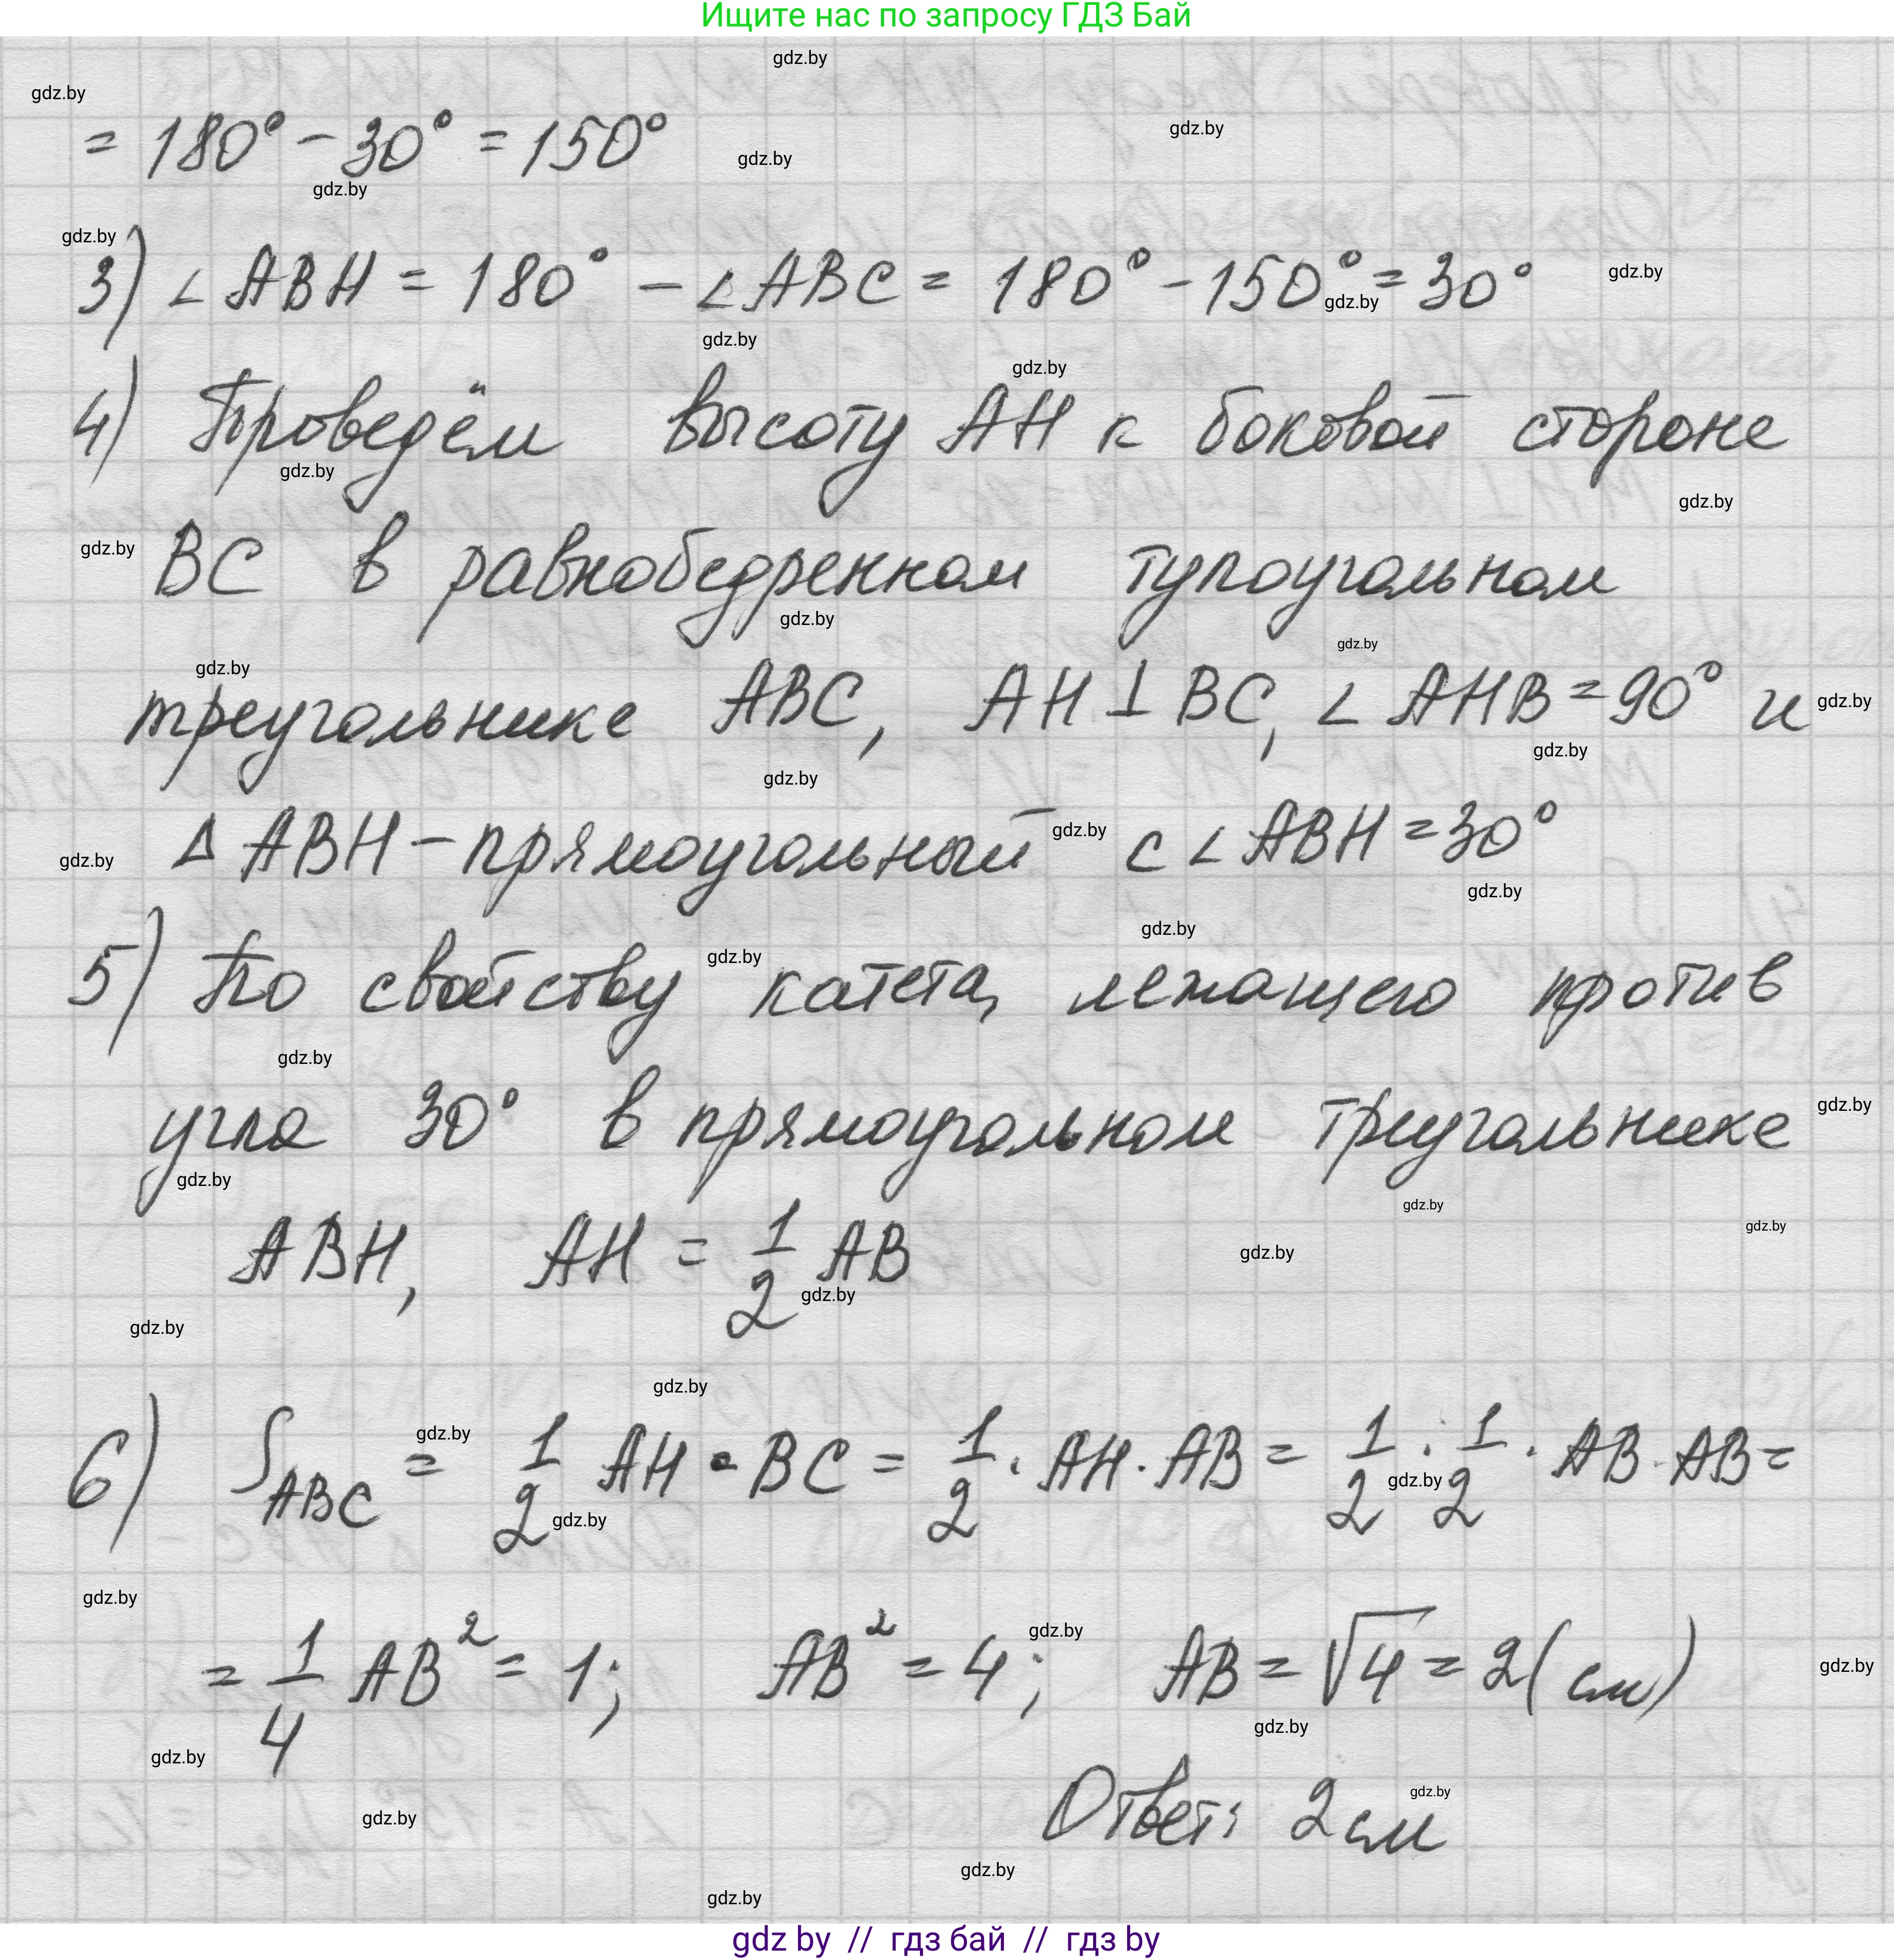 Ищите нас по запросу ГДЗ Бай
gdz.by
gdz.by
gdz.by
= 180° - 30° = 150°
gdz.by
gdz.by
gdz.by
3) ∠ABH = 180° - ∠ABC = 180° - 150° = 30°
gdz.by
gdz.by
gdz.by
gdz.by
4) Проведём высоту AH к боковой стороне
gdz.by
gdz.by
gdz.by
BC в равнобедренном тупоугольном
gdz.by
gdz.by
gdz.by
треугольнике ABC, AH ⊥ BC, ∠AHB = 90° и
gdz.by
gdz.by
gdz.by
Δ ABH - прямоугольный с ∠ABH = 30°
gdz.by
gdz.by
gdz.by
gdz.by
gdz.by
5) По свойству катета, лежащего против
gdz.by
gdz.by
угла 30° в прямоугольном треугольнике
gdz.by
gdz.by
gdz.by
ABH, AH = 1/2 AB
gdz.by
gdz.by
gdz.by
gdz.by
gdz.by
6) S_ABC = 1/2 AH · BC = 1/2 · AH · AB = 1/2 · 1/2 · AB · AB =
gdz.by
gdz.by
gdz.by
gdz.by
= 1/4 AB² = 1; AB² = 4; AB = √4 = 2 (см)
gdz.by
gdz.by
gdz.by
gdz.by
gdz.by
Ответ: 2 см
gdz.by
gdz.by
gdz.by
gdz by // гдз бай // гдз by